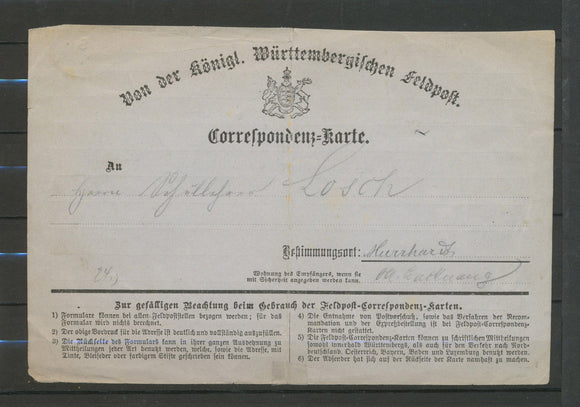 Von der Königl. Württembergischen Feldpost.
Correspondenz-Karte.
An
Herrn Schullehrer Losch
Bestimmungsort: Murrhardt
Wohnung des Empfängers, wenn sie
mit Sicherheit angegeben werden kann.
OA. Backnang
24.)
Zur gefälligen Beachtung beim Gebrauch der Feldpost-Correspondenz-Karten.
1) Formulare können bei allen Feldpoststellen bezogen werden; für das
Formular wird nichts berechnet.
2) Der obige Vordruck für die Adresse ist deutlich und vollständig auszufüllen.
3) Die Rückseite des Formulars kann in ihrer ganzen Ausdehnung zu
Mittheilungen jeder Art benutzt werden, welche, sowie die Adresse, mit
Tinte, Bleifeder oder farbigem Stifte geschrieben sein können.
4) Die Entnahme von Postvorschuß, sowie das Verfahren der Recom-
mandation und der Expreßbestellung ist bei Feldpost-Correspondenz-
Karten nicht gestattet.
5) Die Feldpost-Correspondenz-Karten können zu schriftlichen Mittheilungen
sowohl innerhalb Württembergs, als auch für den Verkehr nach Nord-
deutschland, Oesterreich, Bayern, Baden und Luxemburg benutzt werden.
6) Der Absender hat sich auf der Rückseite der Karte namhaft zu machen.